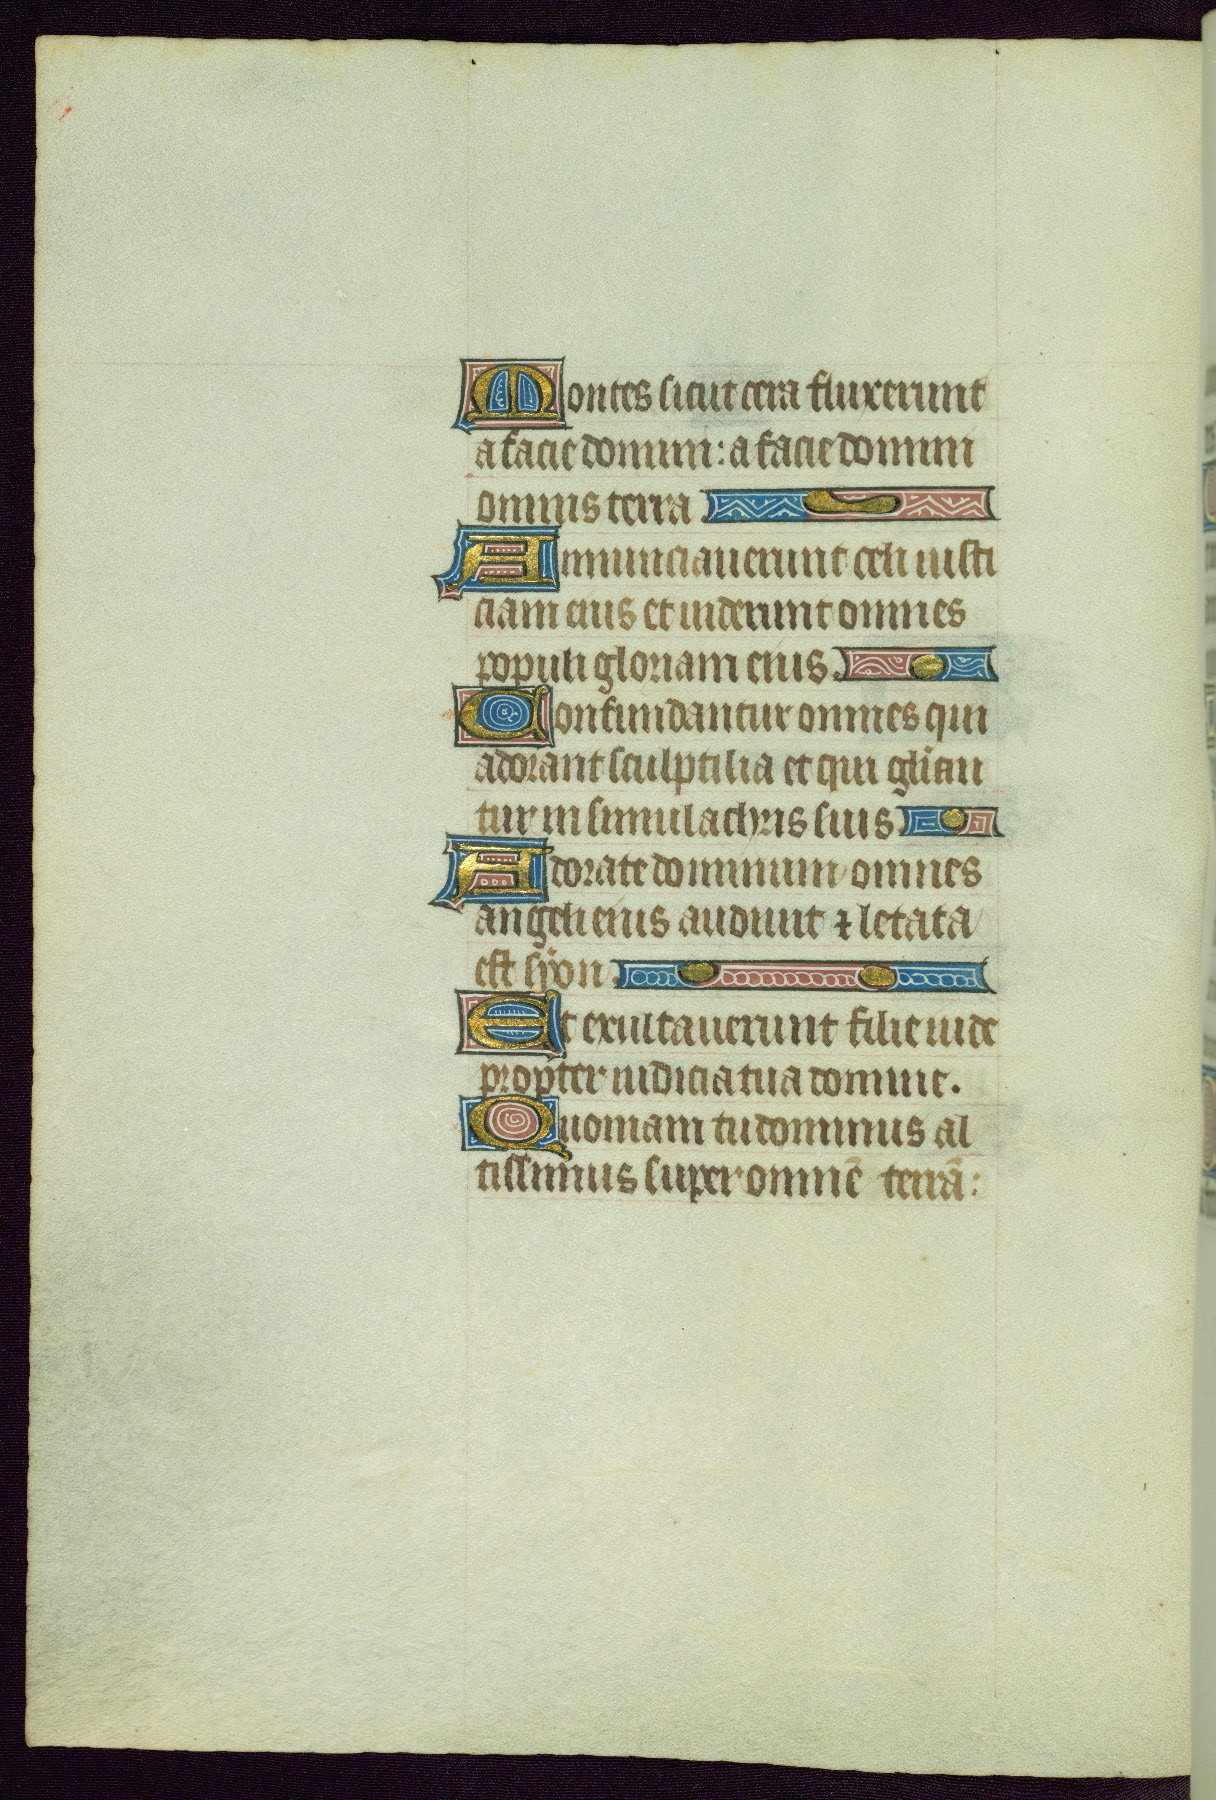 Montes sicut cera fluxerunt
a facie domini: a facie domini
omnis terra.
Annunciauerunt celi iusti
ciam eius et uiderunt omnes
populi gloriam eius.
Confundantur omnes qui
adorant sculptilia et qui glian
tur in simulachris suis
Adorate dominum omnes
angeli eius audiuit ⁊ letata
est syon.
Et exultauerunt filie iude
propter iudicia tua domine.
Quoniam tu dominus al
tissimus super omnē terrā: